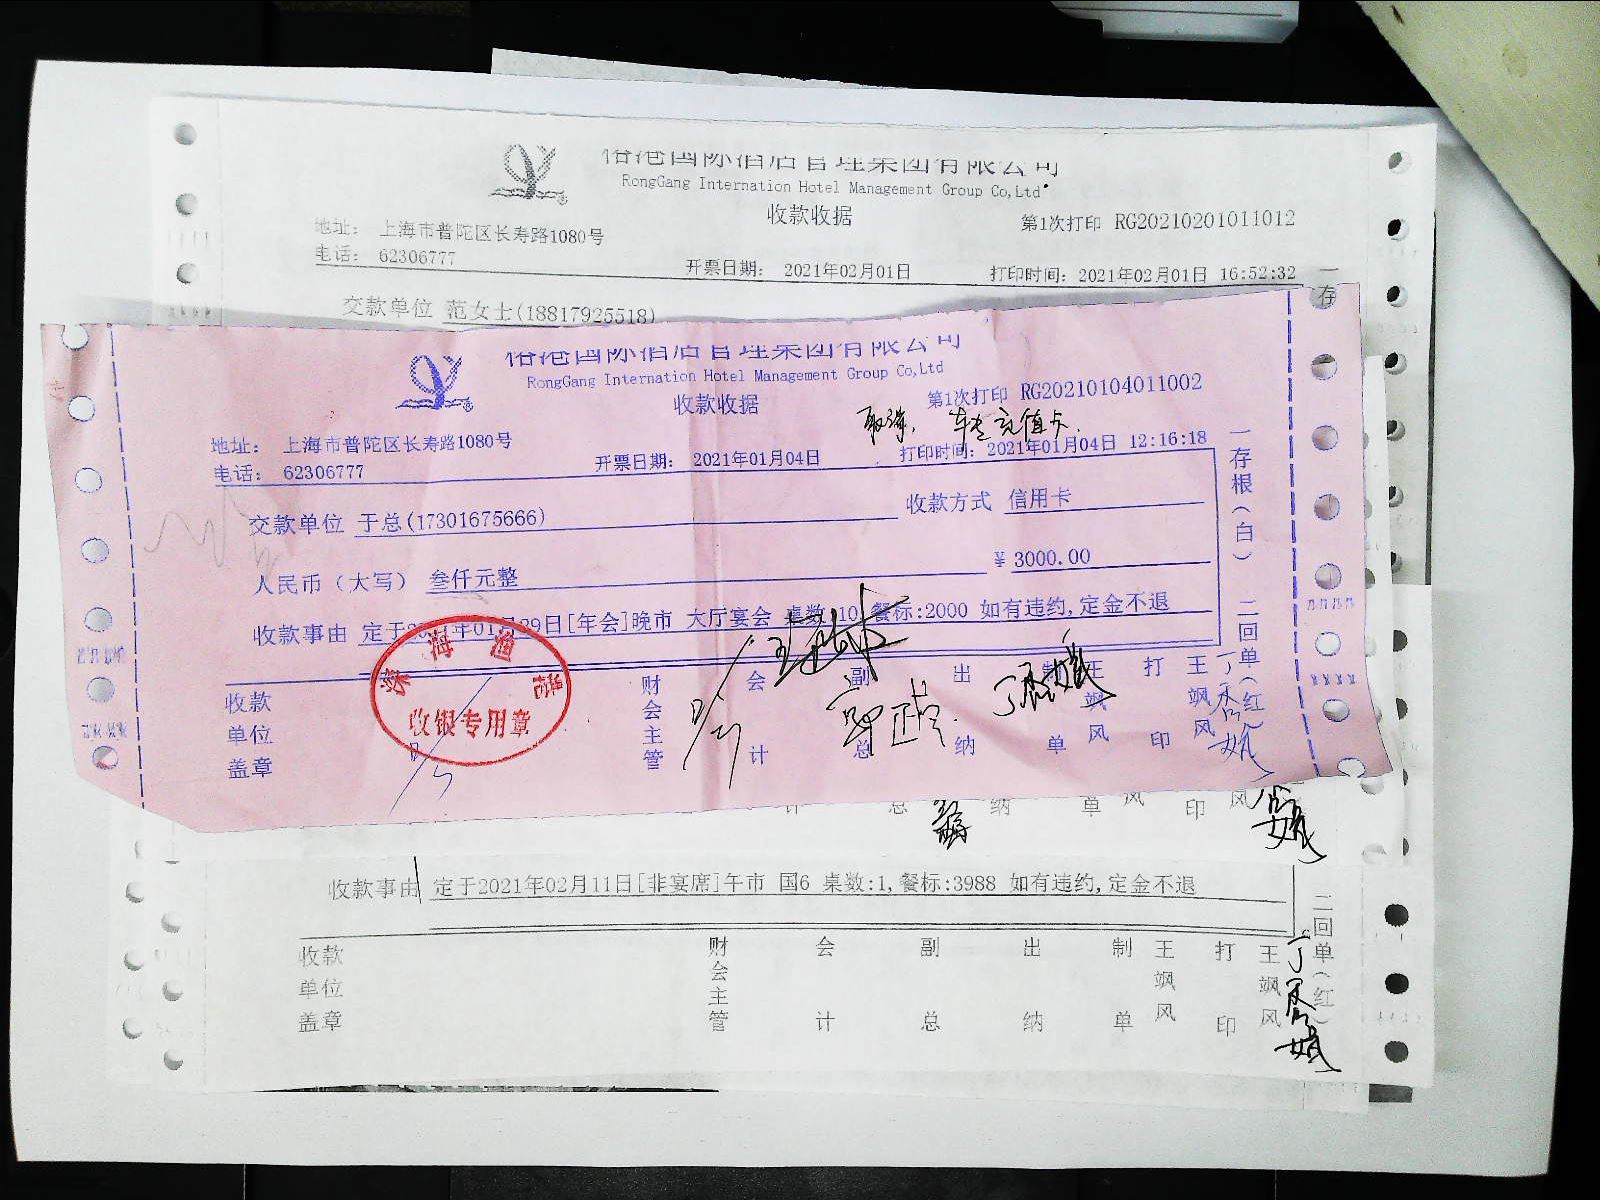 国际酒店管理集团有限公司
RongGang Internation Hotel Management Group Co,Ltd
收款收据
第1次打印 RG20210201011012
地址： 上海市普陀区长寿路1080号
电话： 62306777
开票日期： 2021年02月01日
打印时间：2021年02月01日 16:52:32
交款单位 范女士(18817925518)
一存
国际酒店管理集团有限公司
RongGang Internation Hotel Management Group Co,Ltd
收款收据
第1次打印 RG20210104011002
充值卡
地址： 上海市普陀区长寿路1080号
电话： 62306777
开票日期： 2021年01月04日
打印时间：2021年01月04日 12:16:18
交款单位 于总(17301675666)
收款方式 信用卡
人民币（大写） 叁仟元整
￥3000.00
收款事由 定于2021年01月29日[年会]晚市 大厅宴会 桌数:10,餐标:2000 如有违约,定金不退
一存根（白） 二回单（红）
收款单位盖章
收银专用章
财会主管
会计
副总
出纳
制单
王飒风
打印
王飒风
计 总 纳 单 风 印 风
收款事由 定于2021年02月11日[非宴席]午市 国6 桌数:1,餐标:3988 如有违约,定金不退
二回单（红）
收款单位盖章
财会主管
会计
副总
出纳
制单
王飒风
打印
王飒风